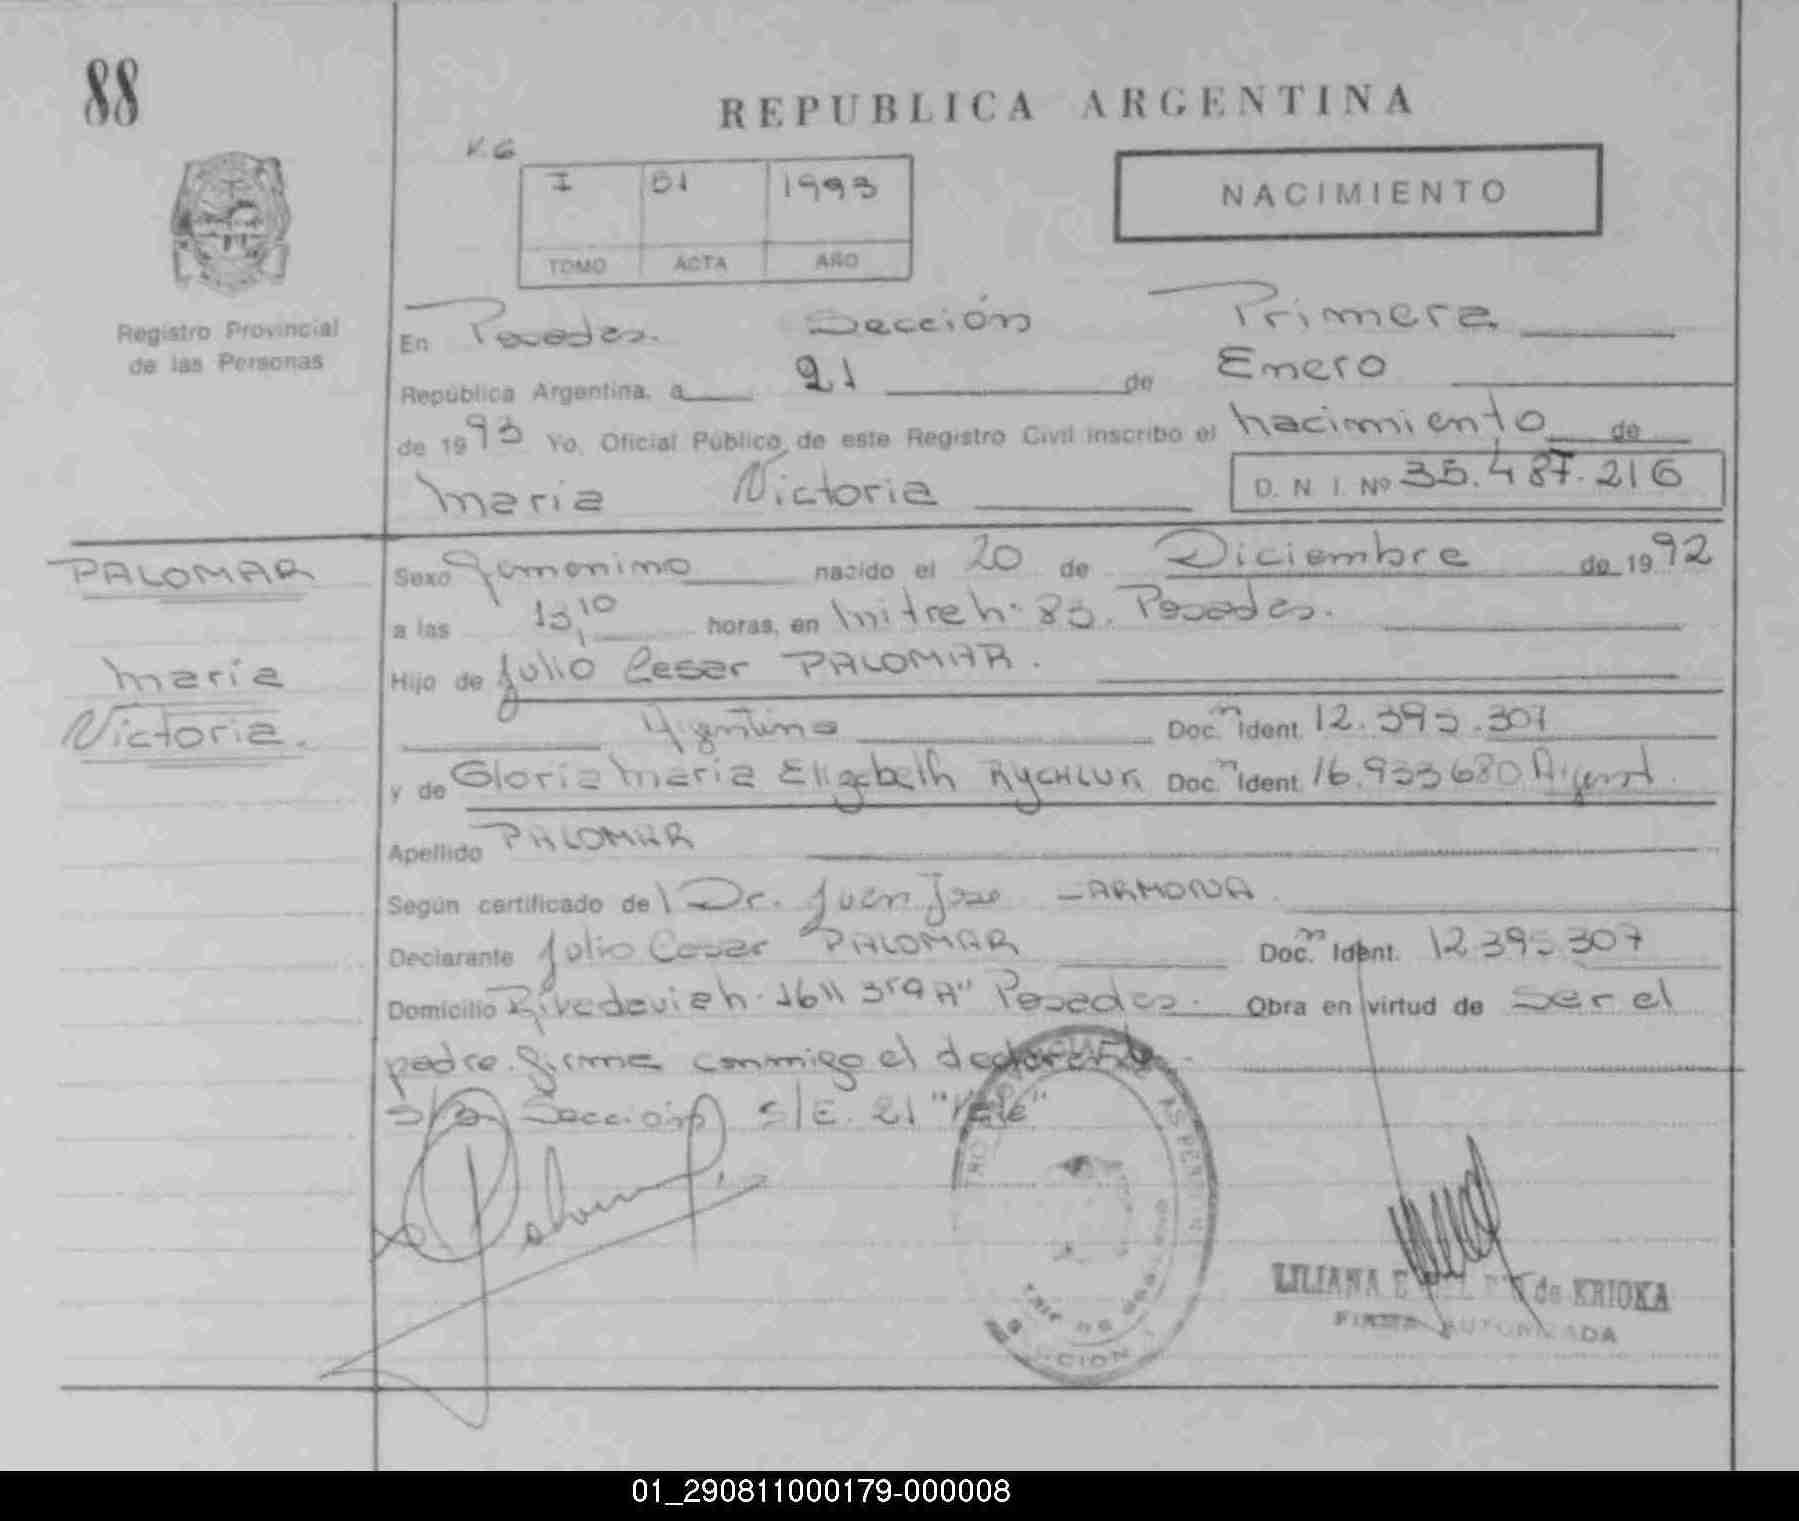 88
REPUBLICA ARGENTINA
K6
I 51 1993
TOMO ACTA AÑO
NACIMIENTO
Registro Provincial
de las Personas
En Posadas. Sección Primera
República Argentina, a 21 de Enero
de 1993 Yo, Oficial Público de este Registro Civil inscribo el nacimiento de
Maria Victoria D. N. I. Nº 35.487.216
PALOMAR
Maria
Victoria.
Sexo Femenino nacido el 20 de Diciembre de 1992
a las 13,10 horas, en Mitre n. 83. Posadas.
Hijo de Julio Cesar PALOMAR.
Argentino Doc. n Ident. 12.395.307
y de Gloria Maria Elizabeth RYCHLUK Doc. n Ident. 16.933680 Argent.
Apellido PALOMAR
Según certificado del Dr. Juan Jose
Declarante Julio Cesar PALOMAR Doc. n Ident. 12.395.307
Domicilio Rivadavia n. 1611 3º "A" Posadas. Obra en virtud de ser el
padre. firma conmigo el declarante.
Sección S/E. 21 "Vale"
CCION
LILIANA de KRIOKA
FIRMA AUTORIZADA
01_290811000179-000008